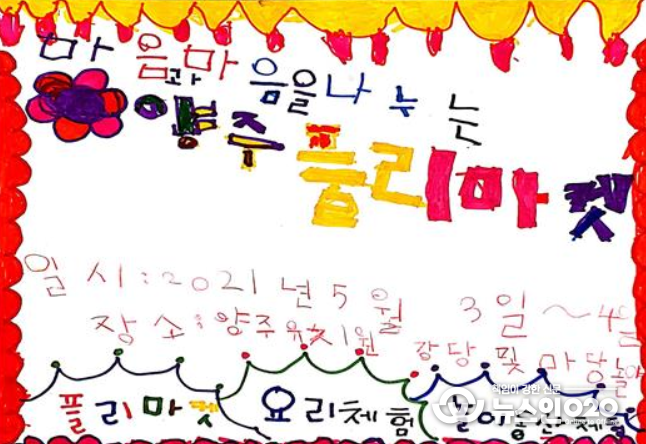 마음과마음을나누는
양주플리마켓
일시:2021년5월 3일~4일
장소:양주유치원 강당 및 마당놀이
플리마켓 요리체험
뉴스인020